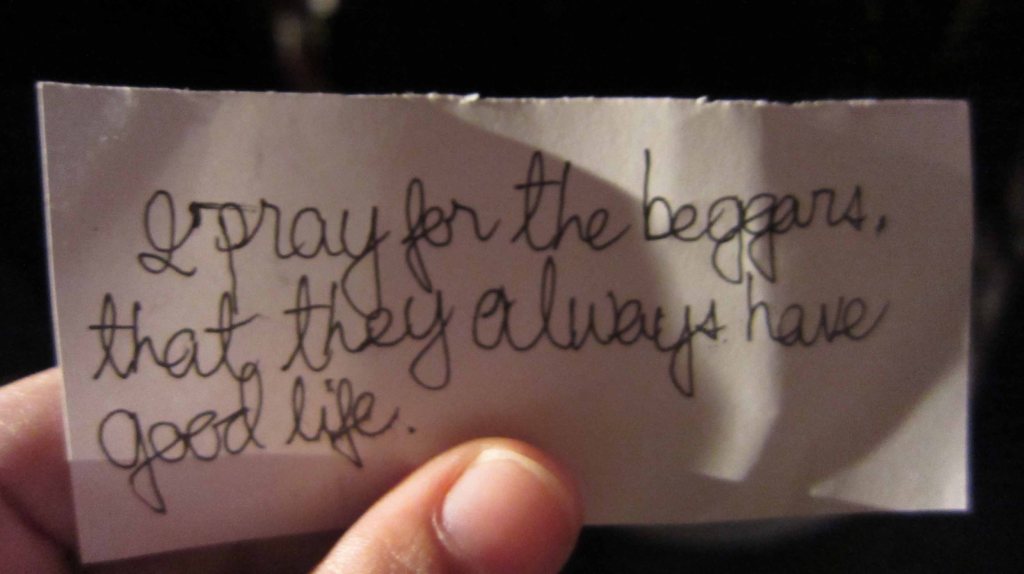 I pray for the beggars,
that they always have
good life.